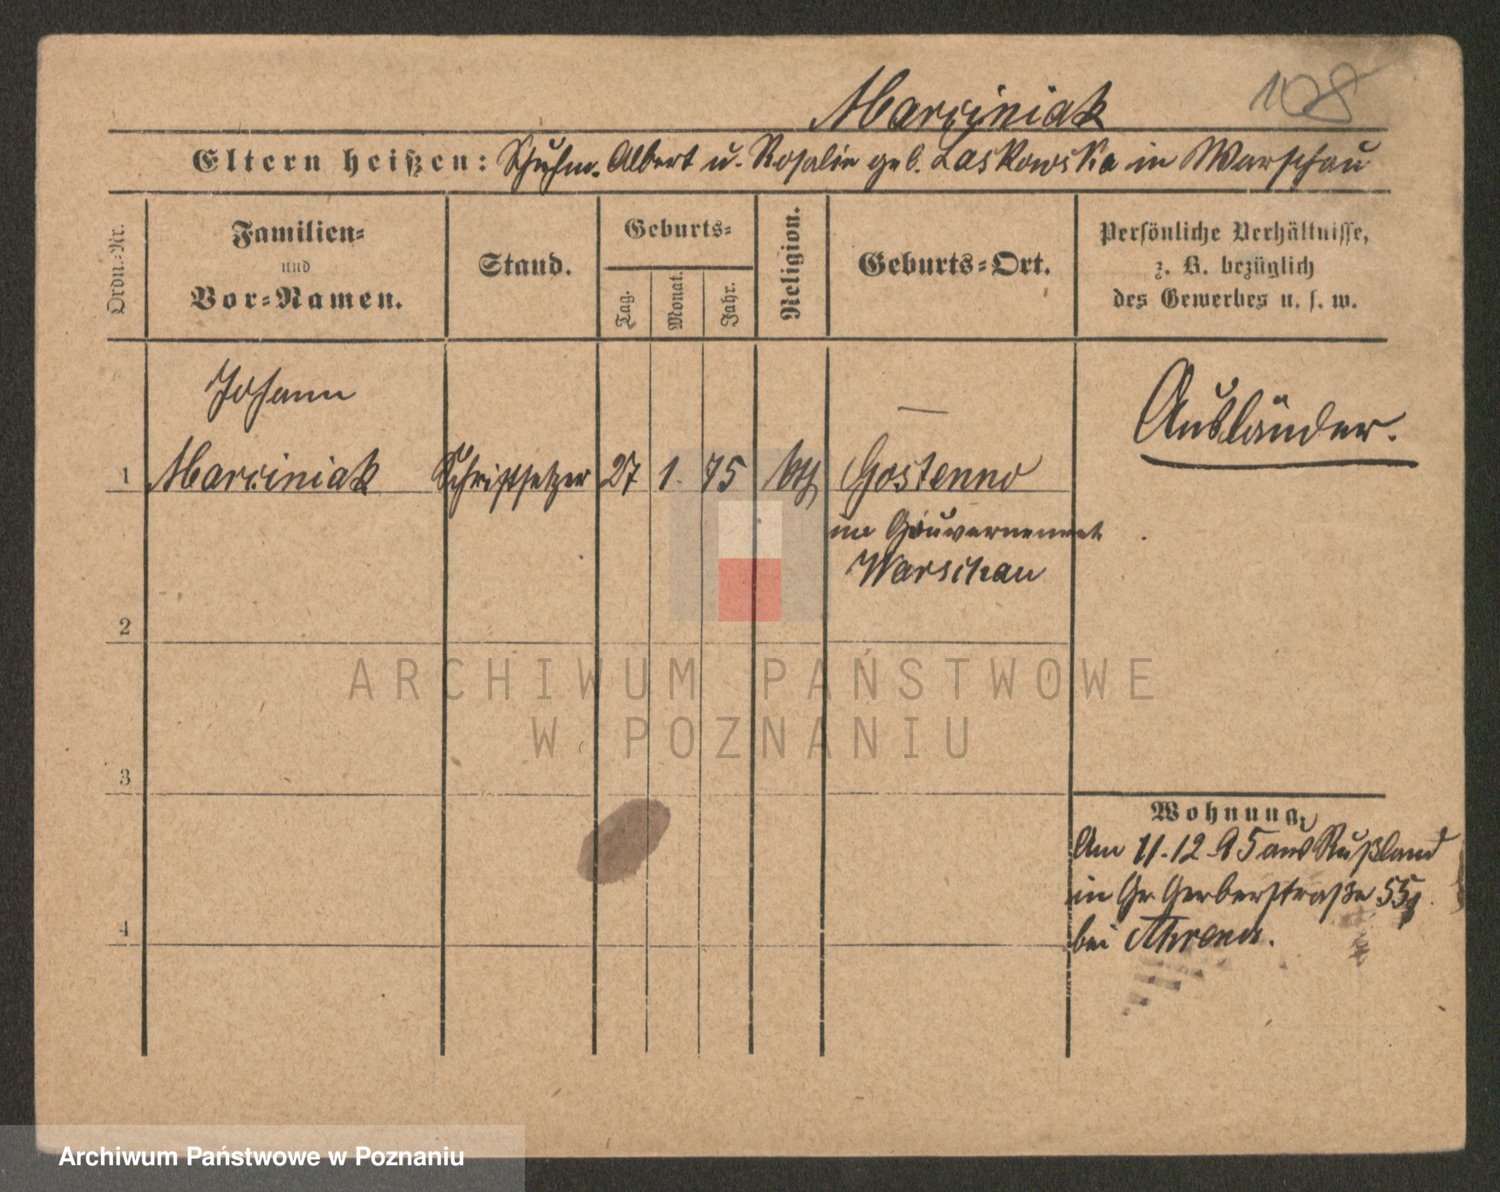 108
Marciniak
Eltern heißen: Schuhm. Albert u. Rosalie geb. Laskowska in Warschau
Ordn.-Nr.
Familien-
und
Vor-Namen.
Stand.
Geburts-
Tag.
Monat.
Jahr.
Religion.
Geburts-Ort.
Persönliche Verhältnisse,
z. B. bezüglich
des Gewerbes u. s. w.
Johann
1 Marciniak Schriftsetzer 27 1. 75 kth Gostenno
im Gouvernement
Warschau
Ausländer.
2
3
4
Wohnung.
Am 11.12.95 aus Rußland
in Gr. Gerberstraße 55,
bei Ahrend.
ARCHIWUM PAŃSTWOWE
W POZNANIU
Archiwum Państwowe w Poznaniu